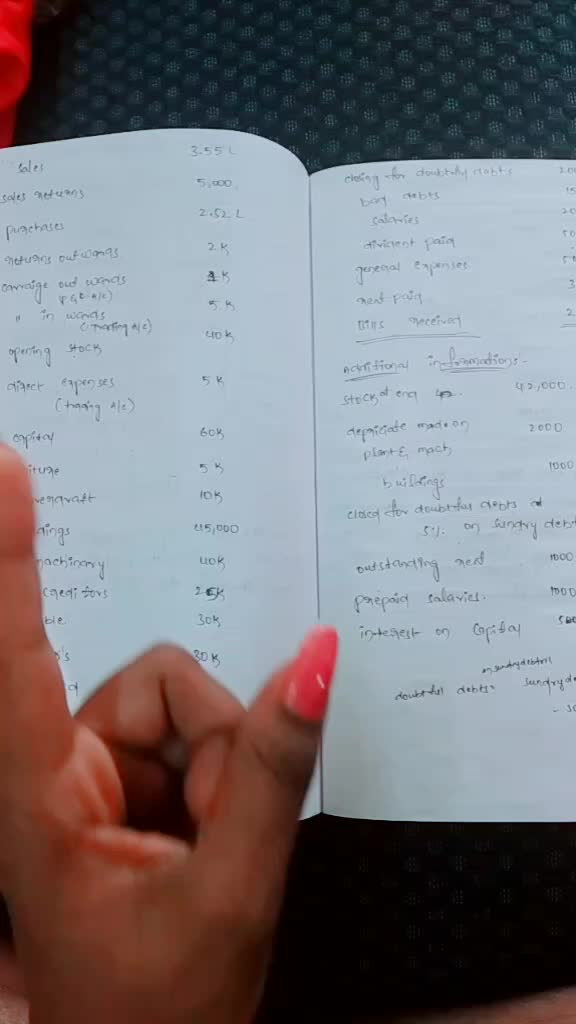 sales 3.55 L
sales returns 5,000
purchases 2.52 L
returns outwards 2K
carraige out wards 1K
(P & L A/c)
" in wards 5K
(Trading A/c)
opening stock 40K
direct expenses 5K
(trading A/c)
capital 60K
iture 5K
verdraft 10K
dings 45,000
machinary 40K
creditors 25K
ble 30K
's 30K
closing for doubtful debts
bad debts
salaries
divident paid
general expenses
rent paid
Bills received
Additional informations:-
stock at end 42,000.
depriciate made on 2000
plant & mach
buildings 1000
closed for doubtful debts
5% on sundry deb
outstanding rent 1000
prepaid salaries. 1000
interest on capital
on sundry debtors
doubtful debts = sundry de